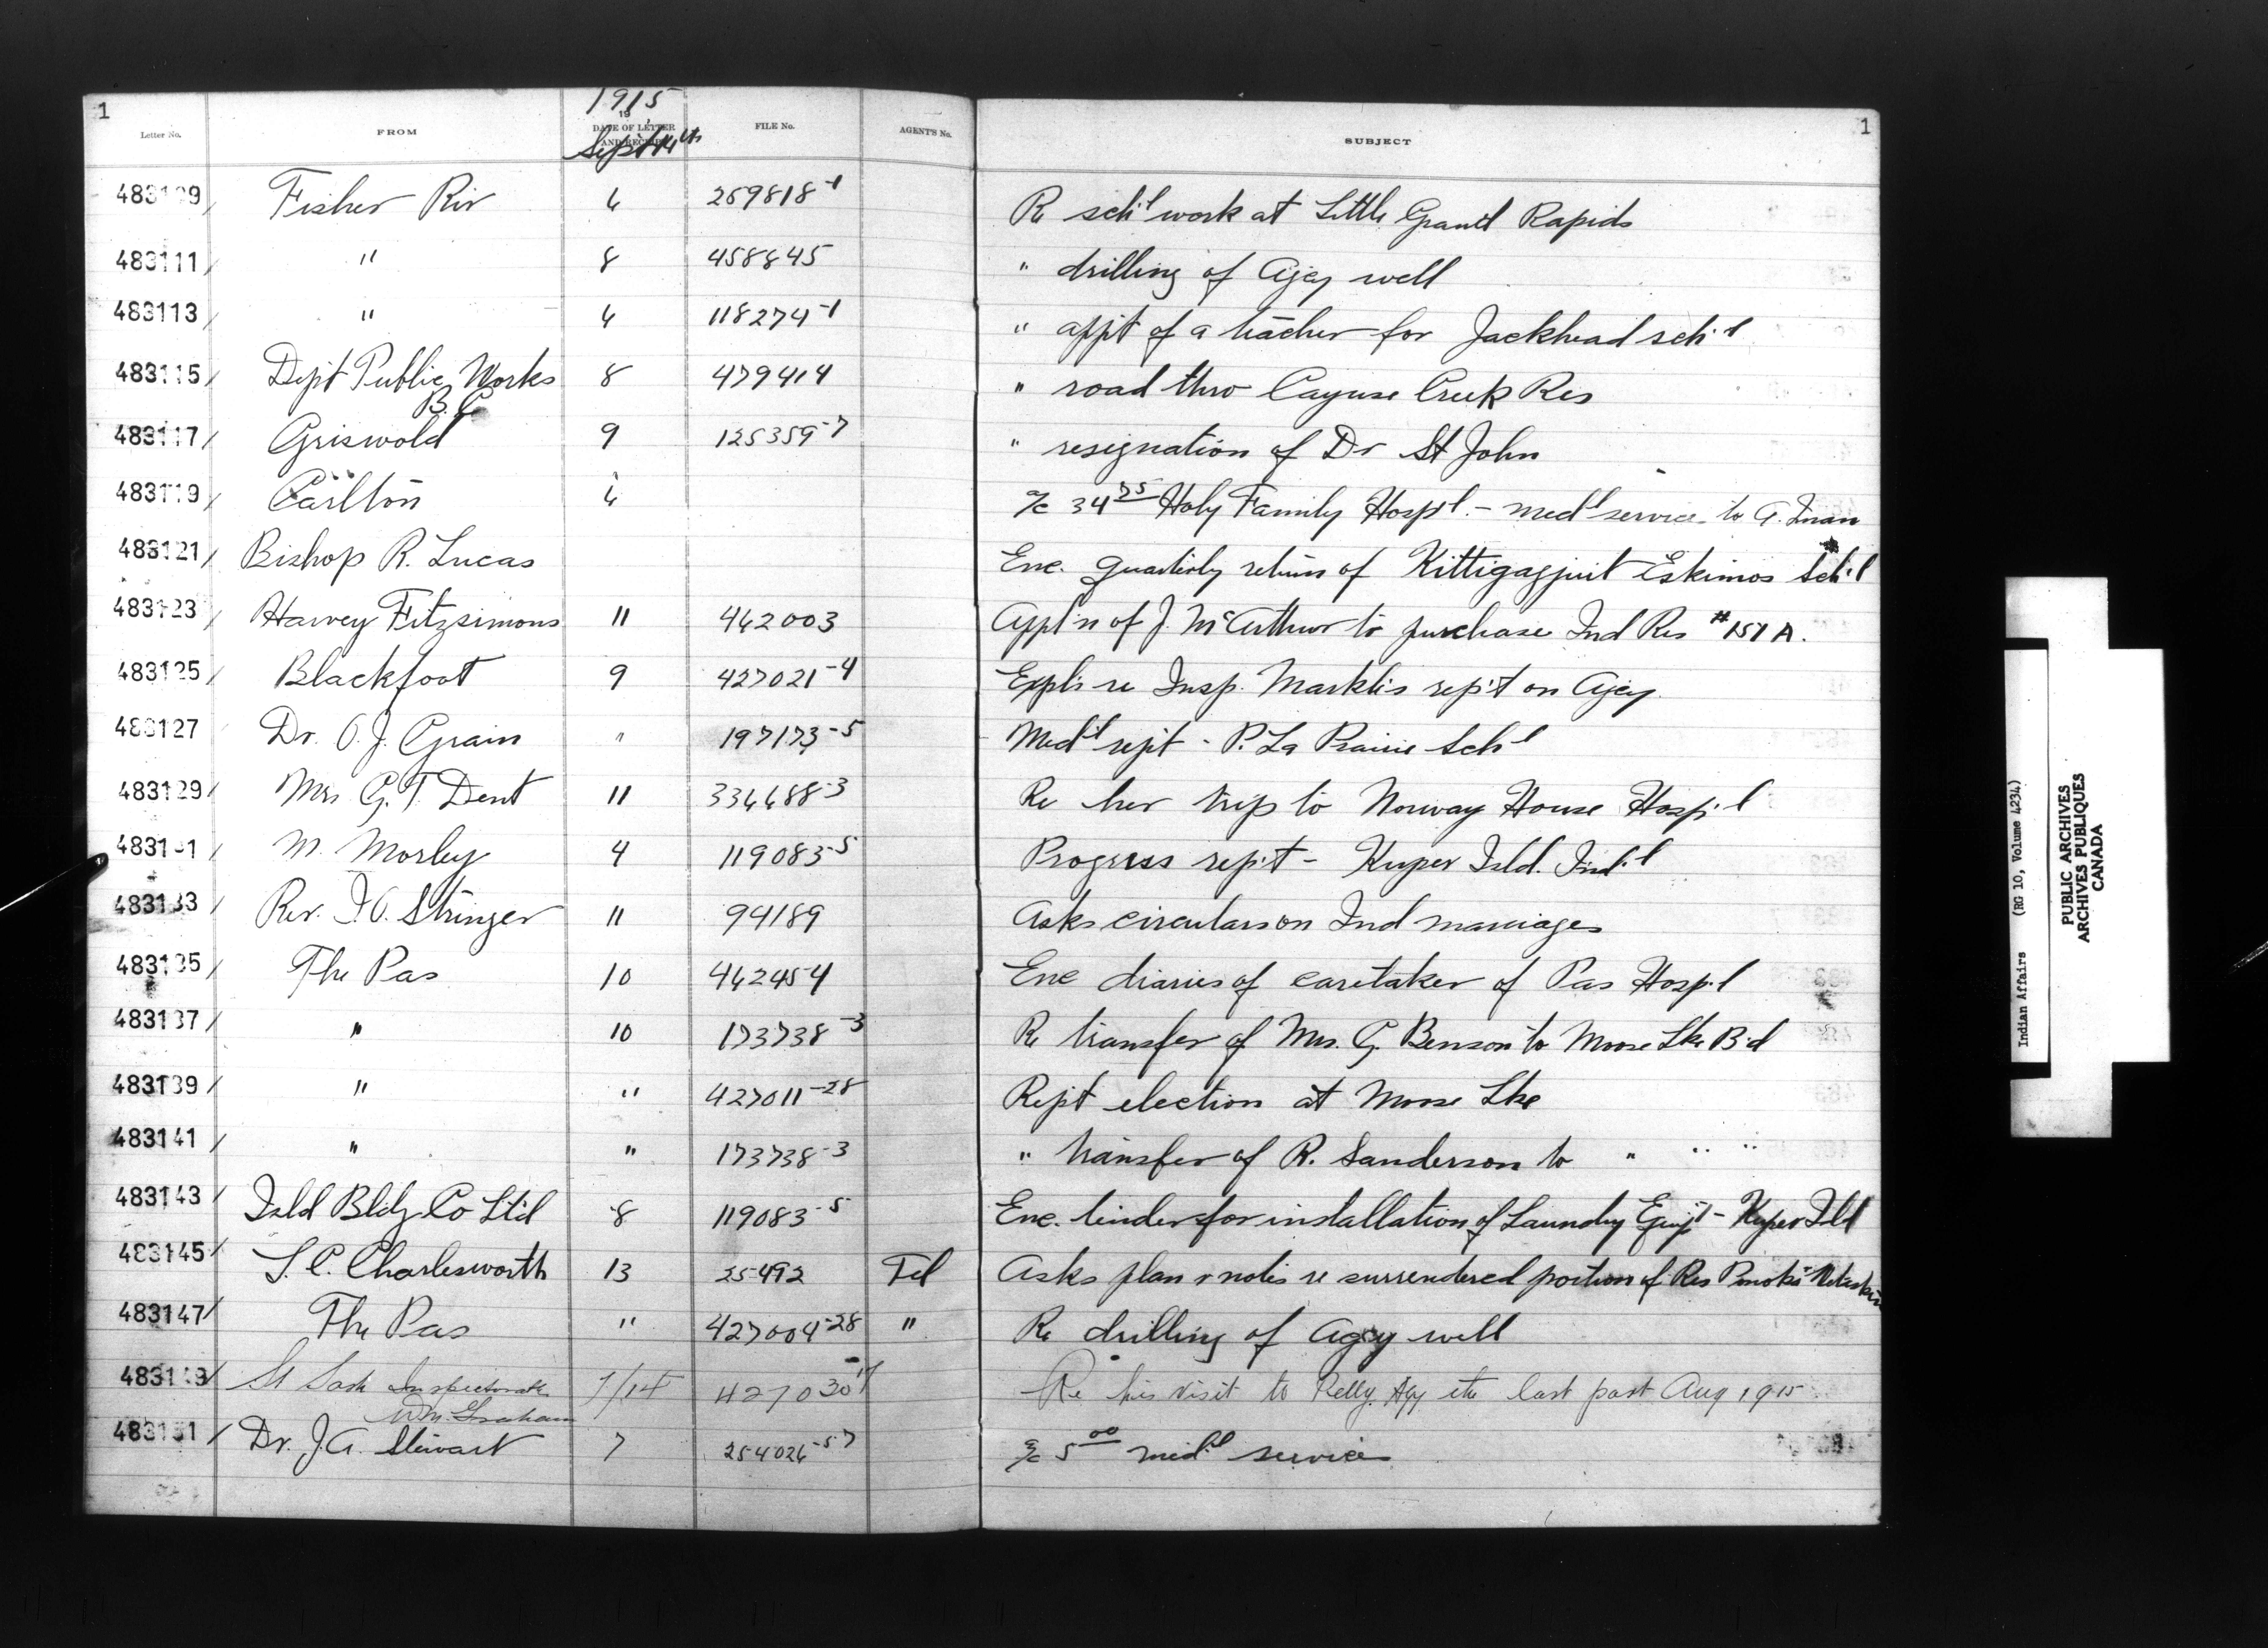 1
1
1915
19
Letter No. FROM DATE OF LETTER AND RECEIPT FILE No. AGENT'S No. SUBJECT
Sept 14th
483109 Fisher Riv 6 259818-1 Re sch'l work at Little Grand Rapids
483111 " 8 458845 " drilling of Agcy well
483113 " 6 118274-1 " app't of a teacher for Jackhead sch'l
483115 Dept Public Works 8 479414 " road thro Cayuse Creek Res
B.C.
483117 Griswold 9 125359-7 " resignation of Dr St John
483119 Carlton 6 a/c 34 75 Holy Family Hosp'l. - med'l service to A.
483121 Bishop R. Lucas Enc. quarterly return of Kittigagjuit Eskimos Sch'l
483123 Harvey Fitzsimons 11 462003 Appl'n of J. McArthur to purchase Ind Res #151A.
483125 Blackfoot 9 427021-4 Expl's re Insp. Markle's rep't on Agcy.
483127 Dr. O. J. Grain " 197173-5 Med'l rep't - P. La Prairie Sch'l
483129 Mrs G. T. Dent 11 336688-3 Re her trip to Norway House Hosp'l
483131 M. Morley 4 119083-5 Progress rep't - Kuper Isld. Ind'l
483133 Rev. I. O. Stringer 11 94189 Asks circulars on Ind marriages
483135 The Pas 10 462454 Enc diaries of caretaker of Pas Hosp'l
483137 " 10 173738-3 Re transfer of Mrs. G. Benson to Moose Lke B'd
483139 " " 427011-28 Rep't election at Moose Lke
483141 " " 173738-3 " transfer of R. Sanderson to " " "
483143 Isld Bldg Co Lt'd 8 119083-5 Enc. tenders for installation of Laundry Equip't - Kuper Isld
483145 L. C. Charlesworth 13 25492 Tel Asks plan & notes re surrendered portion of Res
483147 The Pas " 427004-28 " Re drilling of Agcy well
483149 St Sask Inspectorate 7/14 427030 Re his visit to Pelly Agy etc last part Aug 1915
Wm. Graham
483151 Dr. J. A. Stewart 7 254026-57 a/c 5 00 med'l services
Indian Affairs (RG 10, Volume 4234)
PUBLIC ARCHIVES
ARCHIVES PUBLIQUES
CANADA